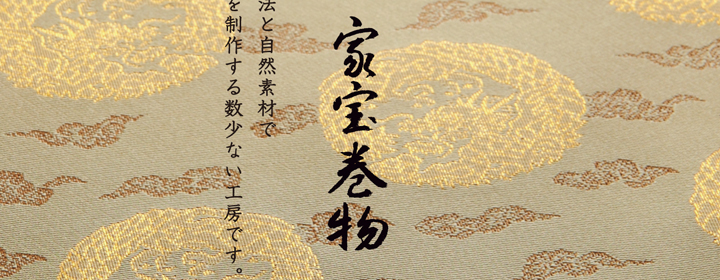 家宝巻物
法と自然素材で
を制作する数少ない工房です。